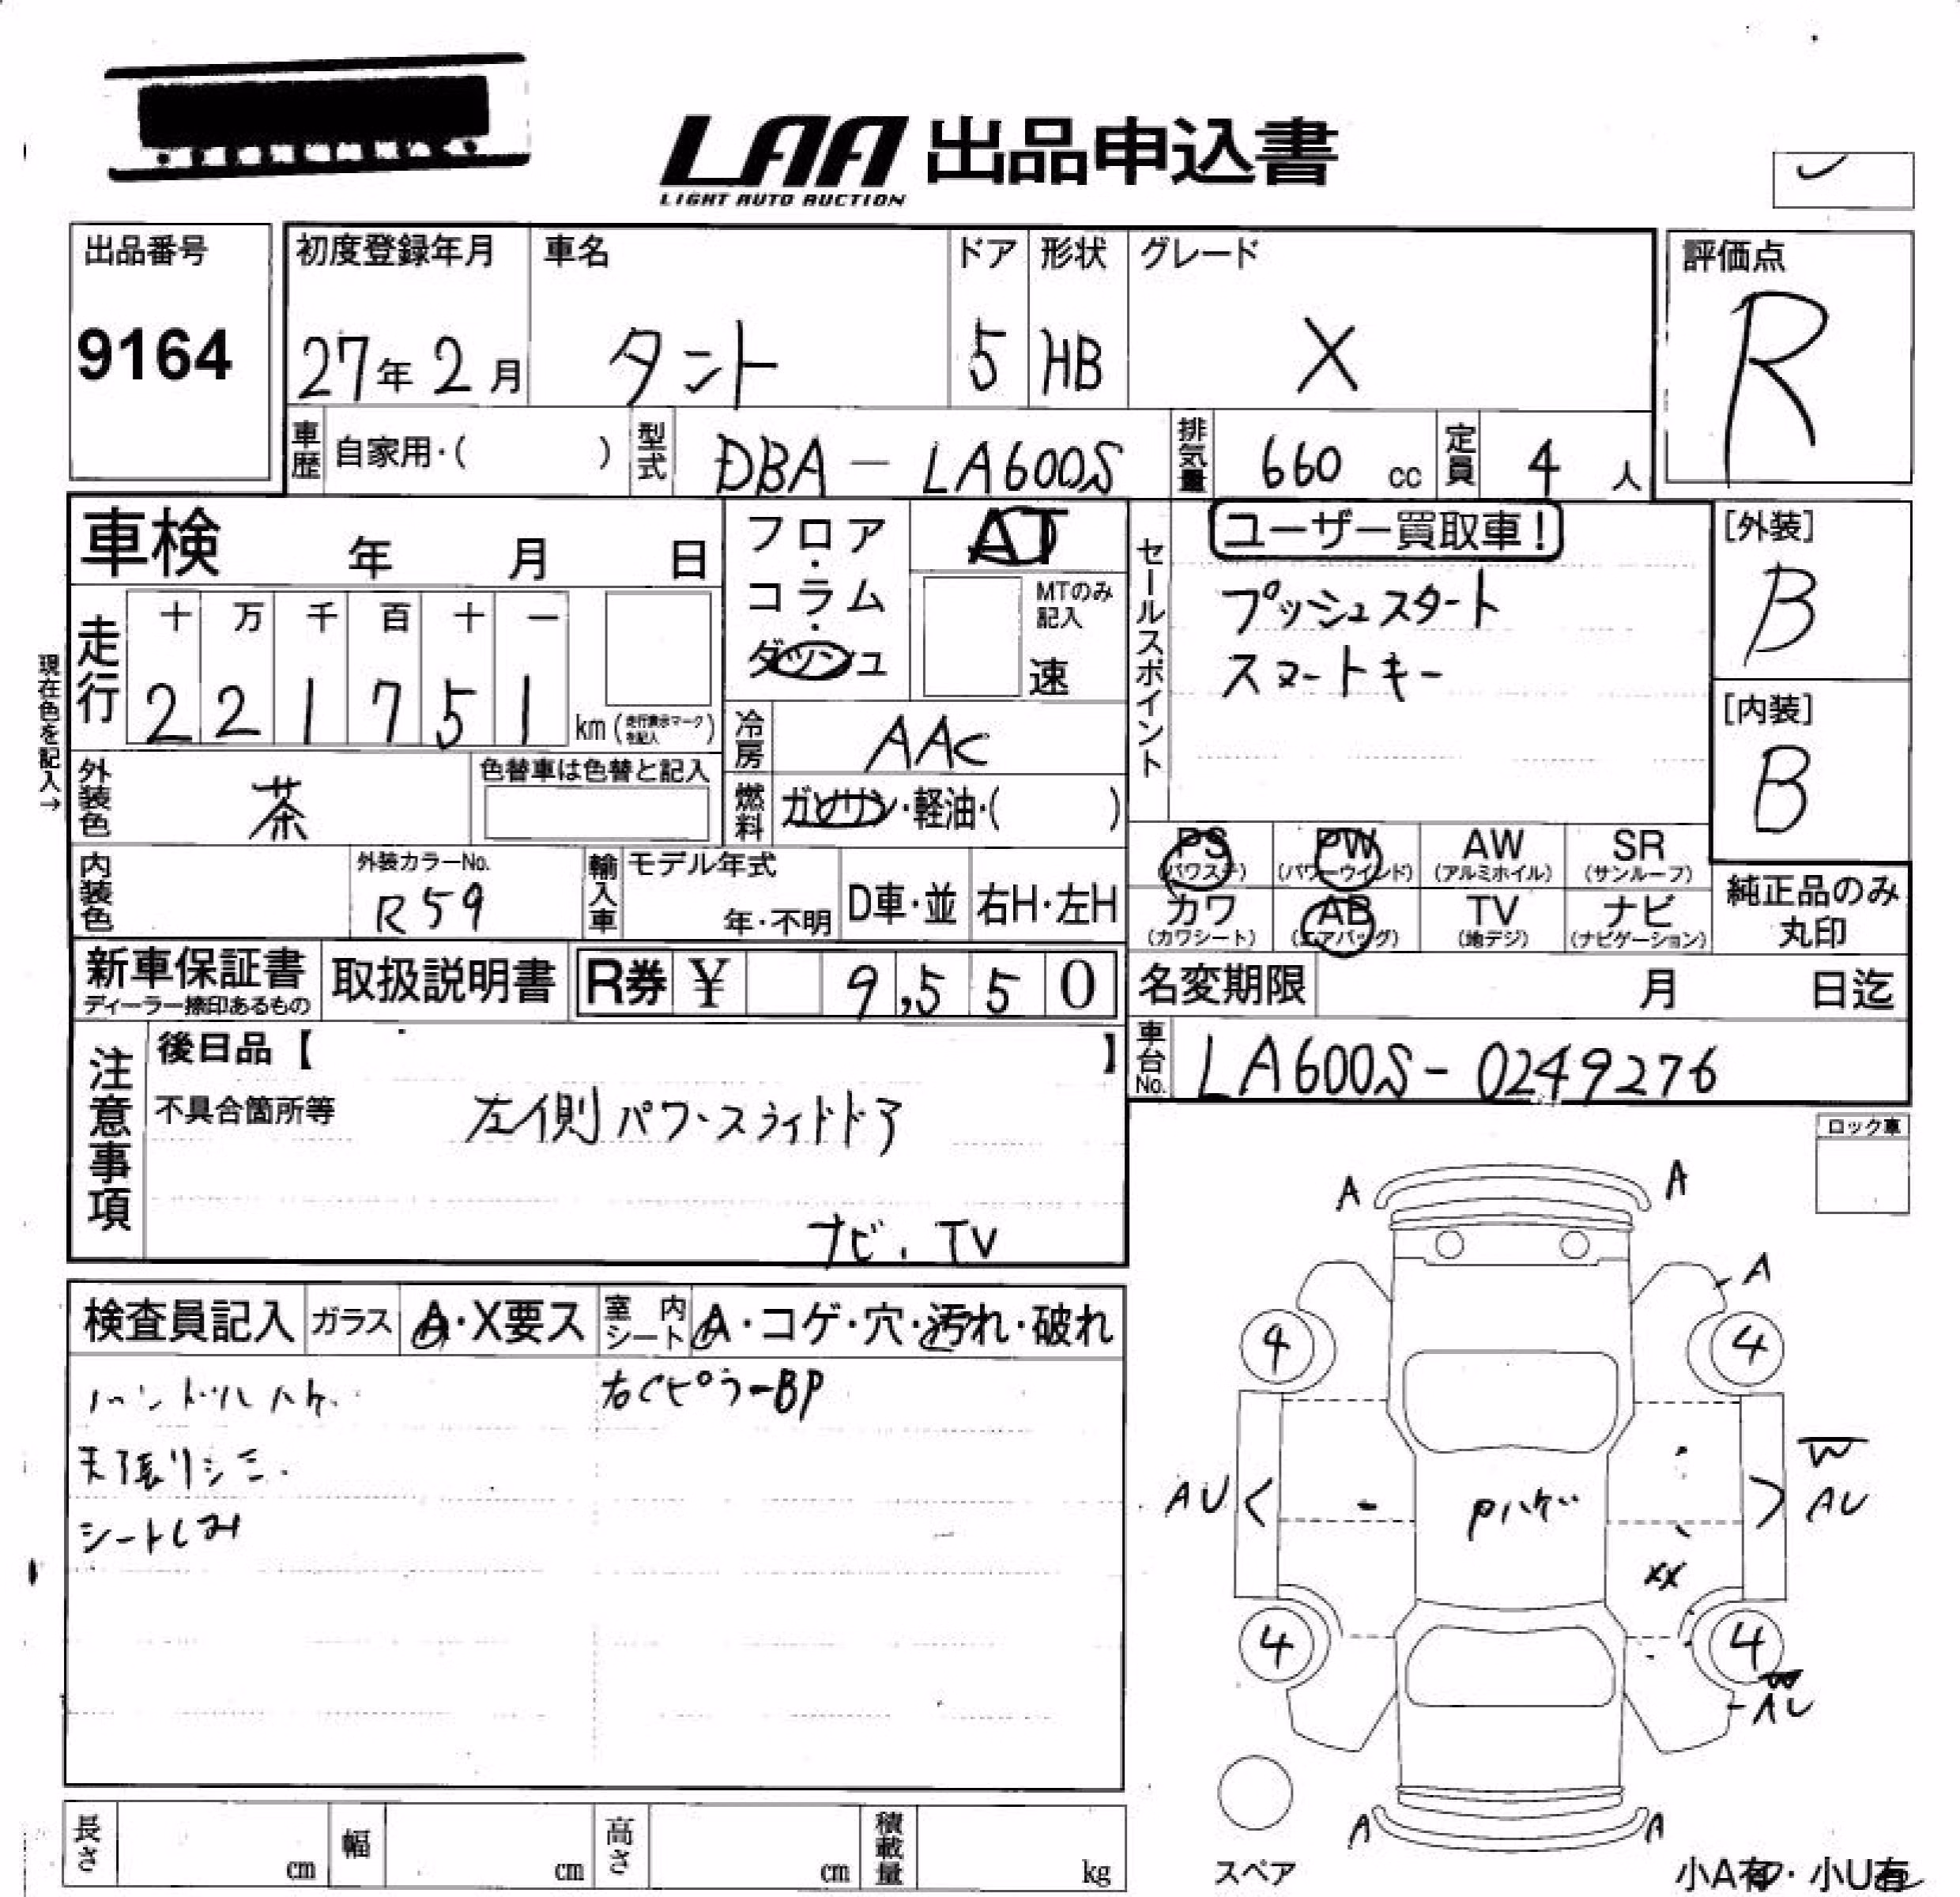 LAA 出品申込書
LIGHT AUTO AUCTION
出品番号
9164
初度登録年月
27年 2月
車名
タント
ドア
5
形状
HB
グレード
X
評価点
R
車歴 自家用・( )
型式 DBA-LA600S
排気量 660 cc
定員 4 人
車検 年 月 日
フロア・コラム・ダッシュ
AT
MTのみ記入
速
セールスポイント
ユーザー買取車!
プッシュスタート
スマートキー
[外装]
B
[内装]
B
現在色を記入→
走行
十 万 千 百 十 一
2 2 1 7 5 1 km (走行表示マークを記入)
冷房 AAC
外装色 茶
色替車は色替と記入
燃料 ガソリン・軽油・( )
内装色
外装カラーNo.
R59
輸入車 モデル年式
年・不明
D車・並
右H・左H
PS (パワステ)
PW (パワーウインド)
AW (アルミホイル)
SR (サンルーフ)
カワ (カワシート)
AB (エアバッグ)
TV (地デジ)
ナビ (ナビゲーション)
純正品のみ
丸印
新車保証書
ディーラー捺印あるもの
取扱説明書
R券 ¥ 9,550
名変期限 月 日迄
車台No. LA600S-0249276
注意事項
後日品【 】
不具合箇所等
左側パワースライドドア
ナビ、TV
ロック車
検査員記入
ガラス A・X要ス
室内シート A・コゲ・穴・汚れ・破れ
ハンドルハゲ.
右Cピラー BP
天張りシミ.
シートしみ
A A
A
4 4
W
AU AU
Pハゲ
XX
4 4
W
AU
A A
スペア
小A有・小U有
長さ cm
幅 cm
高さ cm
積載量 kg